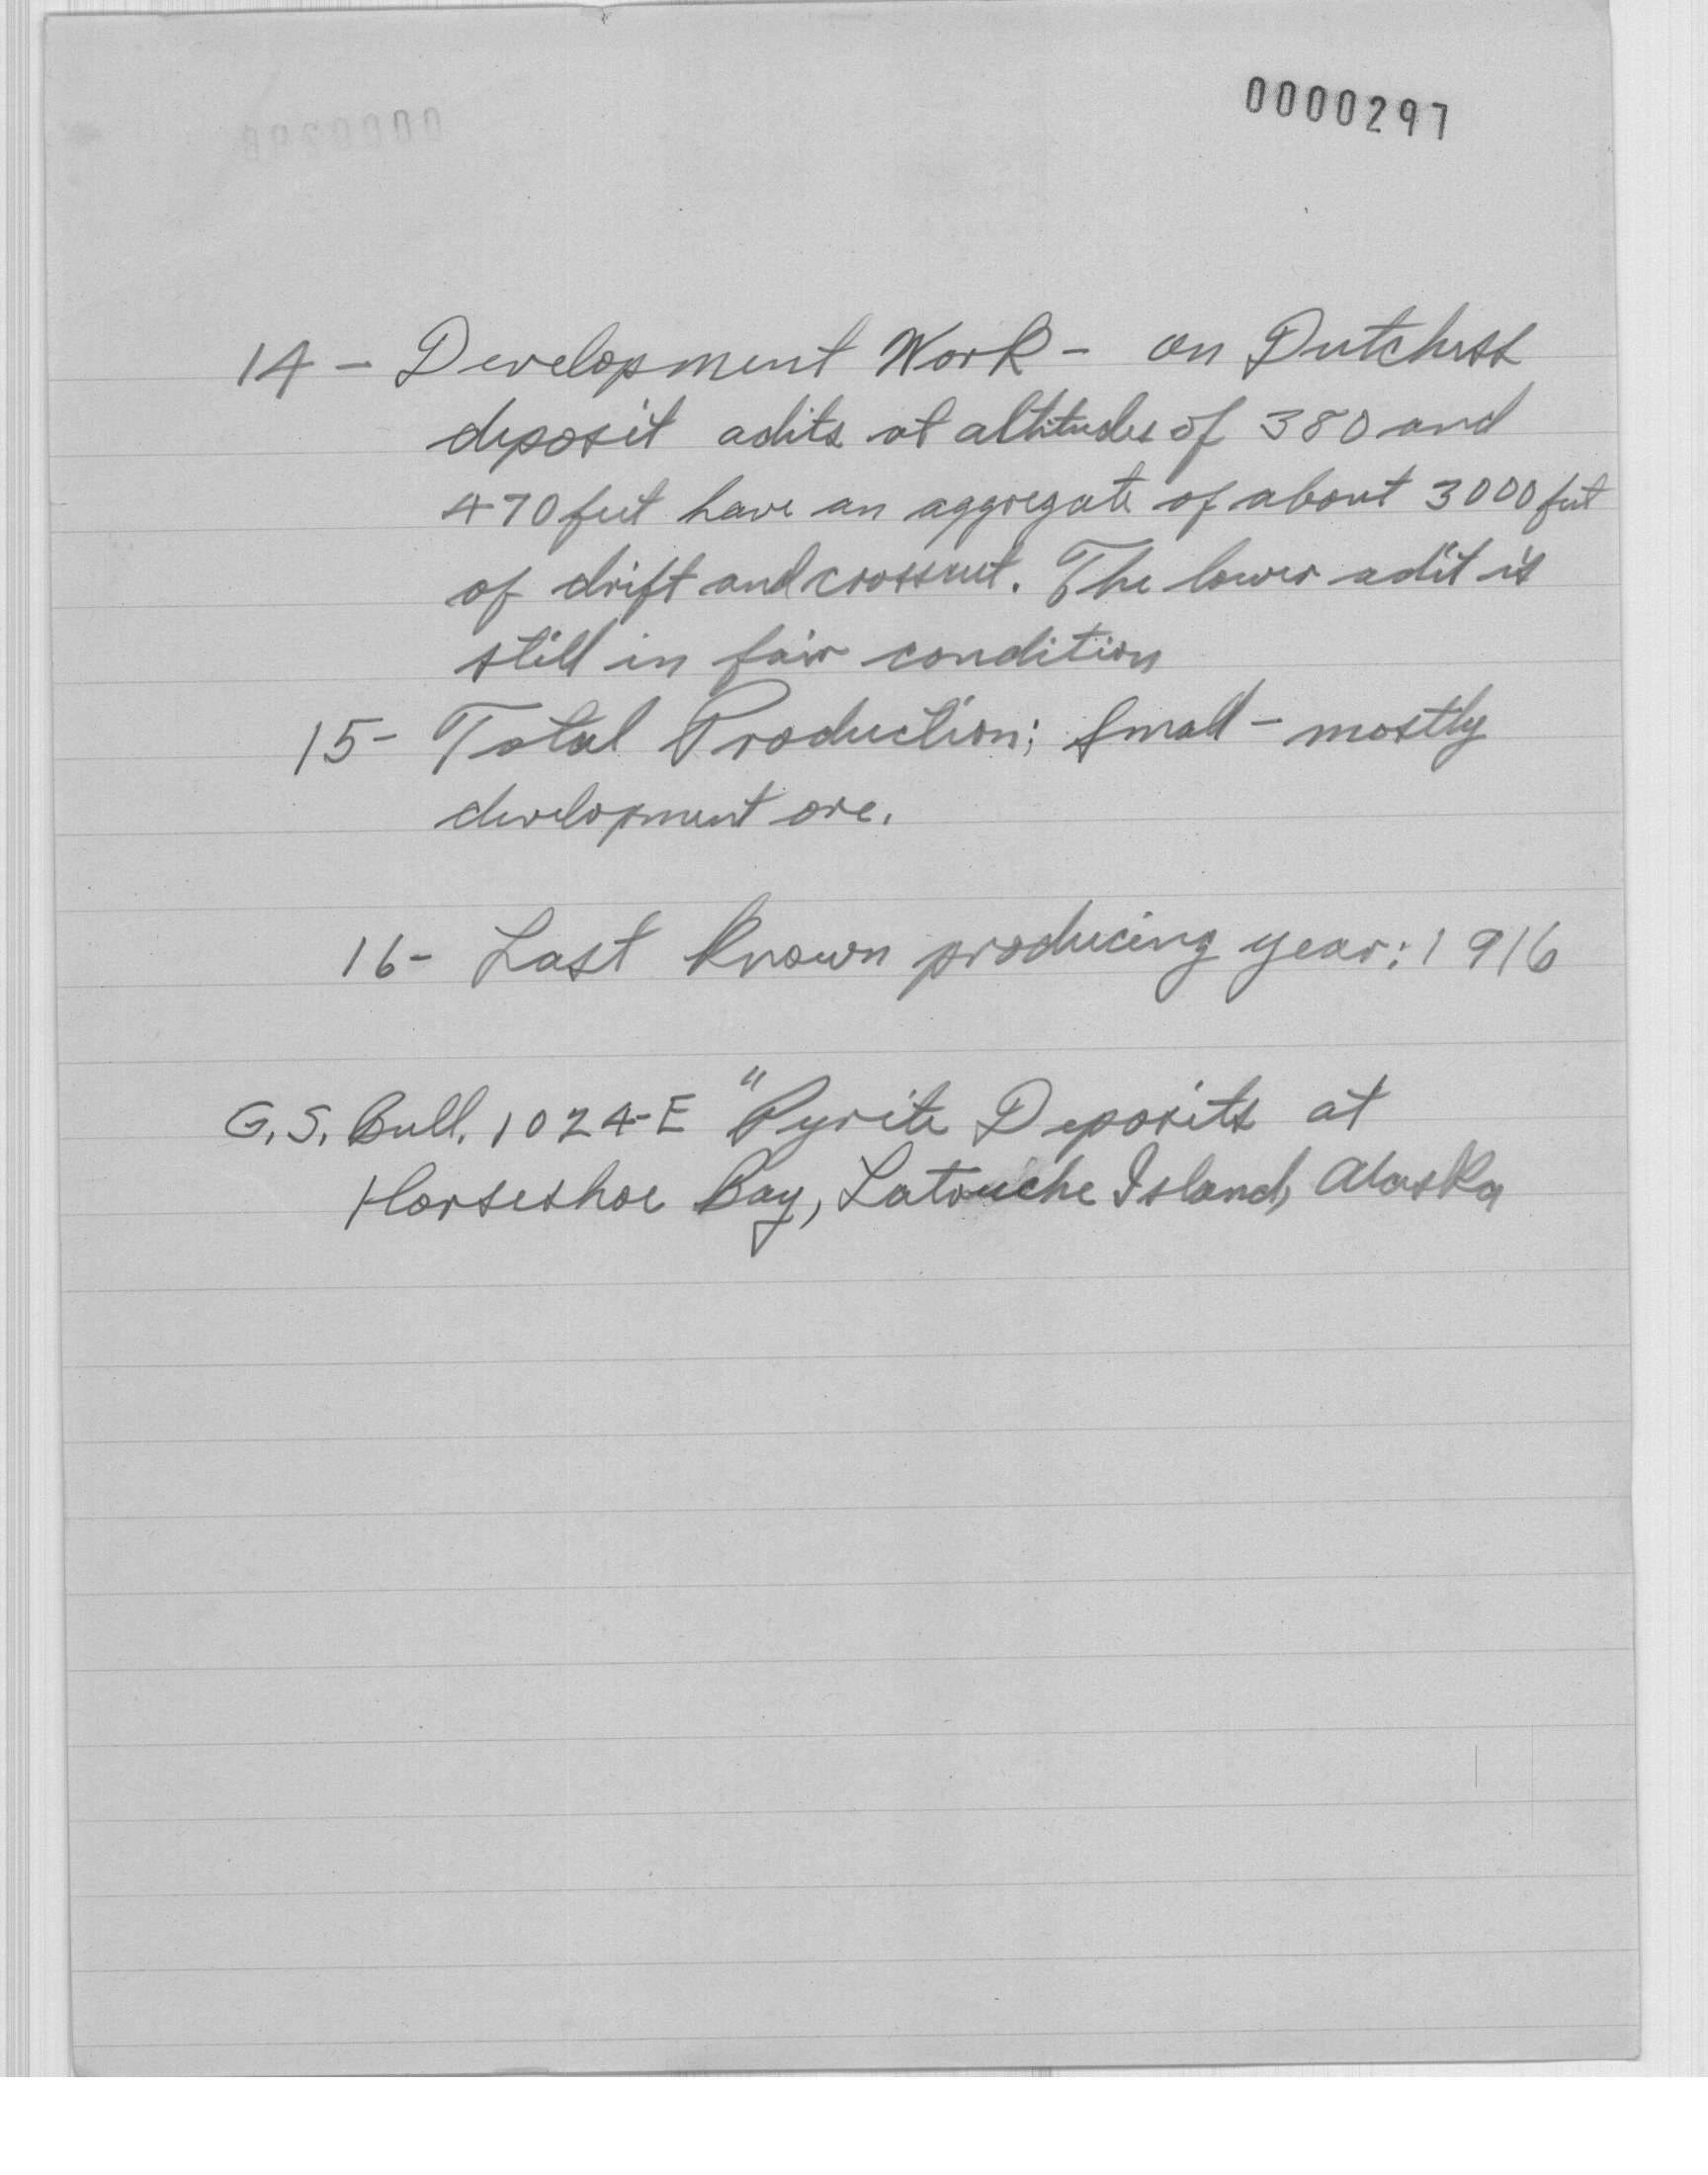 0000297
14 - Development Work - on Dutchess
deposit adits at altitudes of 380 and
470 feet have an aggregate of about 3000 feet
of drift and crosscut. The lower adit is
still in fair condition
15- Total Production; Small - mostly
development ore.
16- Last known producing year: 1916
G.S. Bull. 1024-E "Pyrite Deposits at
Horseshoe Bay, Latouche Island, Alaska